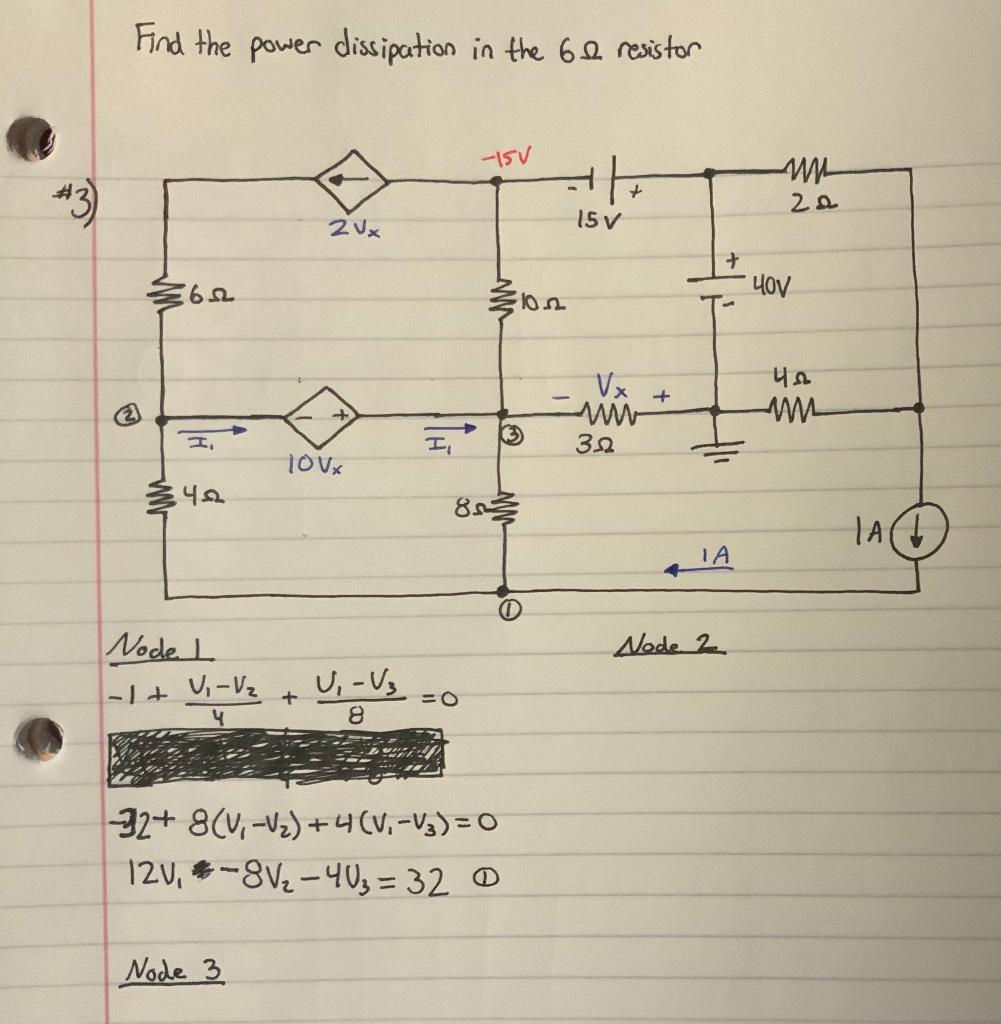 Find the power dissipation in the 6Ω resistor
#3)
-15V
- +
15V
2Ω
2Vx
6Ω
10Ω
+
40V
-
②
I₁
- +
10Vx
I₁
③
- Vx +
3Ω
4Ω
4Ω
8Ω
1A
1A
①
Node 1
Node 2
-1 + (V₁-V₂)/4 + (V₁-V₃)/8 = 0
-32 + 8(V₁-V₂) + 4(V₁-V₃) = 0
12V₁ -8V₂ - 4V₃ = 32 ①
Node 3